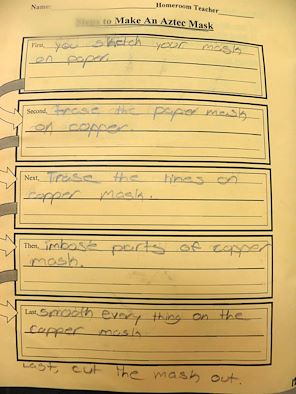 Name:
Homeroom Teacher
Steps to Make An Aztec Mask
First, you sketch your mask
on paper.
Second, Trase the paper mask
on copper.
Next, Trase the lines on
copper mask.
Then, imbose parts of copper
mask.
Last, smooth every thing on the
copper mask
Last, cut the mask out.